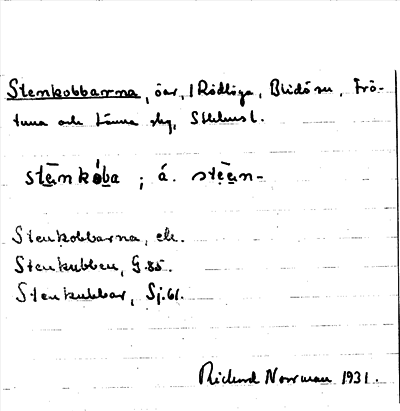 Stenkobbarna, öar, i Rödlöga, Blidö sn, Frö-
tuna och Länna skg, Sthlms l.
stēnkòba ; á. stēan-
Stenkobbarna, ek.
Stenkubben, G.85.
Stenkubbar, Sj.61.
Rickard Norrman 1931.